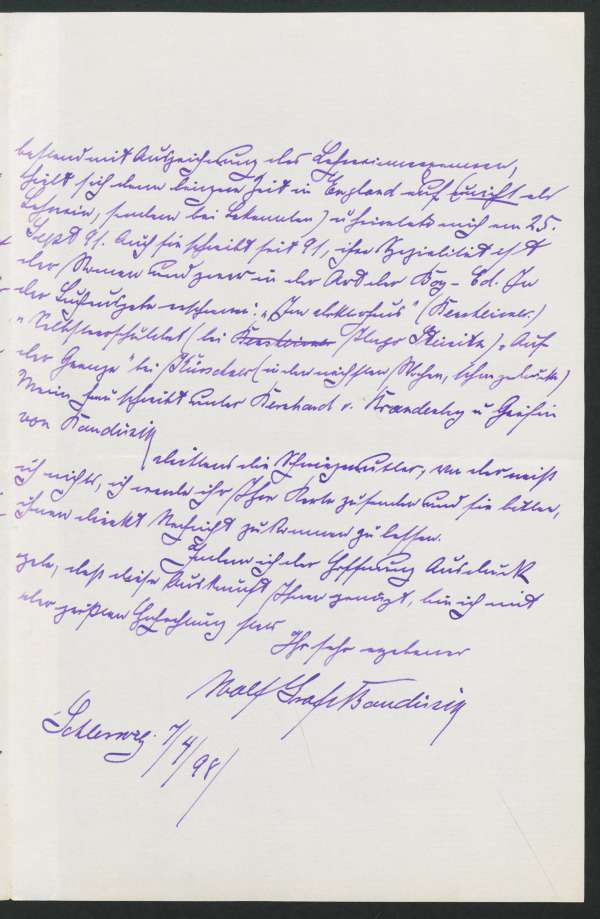 bestand mit Auszeichnung das Lehrerinnenexamen,
hielt sich dann längere Zeit in England auf (nicht als
Lehrerin, sondern bei Bekannten) u heiratete mich am 25.
Sept 91. Auch sie schreibt seit 91, ihre Spezialität ist
der Roman und zwar in der Art der Boy-Ed. In
der Buchausgabe erschienen: „Im " (
„Selbstverschuldet (bei Hugo Steinitz) „Auf
der Grenze" bei Kürschner (in den nächsten Wochen, schon gedruckt)
Meine Frau schreibt unter Bernhard v. Brandenburg u Gräfin
von Baudissin
drittens die Schwiegermutter, von der weiß
ich nichts, ich werde ihr Ihre Karte zusenden und sie bitten,
Ihnen direkt Nachricht zukommen zu lassen.
Indem ich der Hoffnung Ausdruck
gebe, daß diese Auskunft Ihnen genügt, bin ich mit
der größten Hochachtung
Ihr sehr ergebener
Wolf Graf Baudissin
Schleswig. 7/4/98